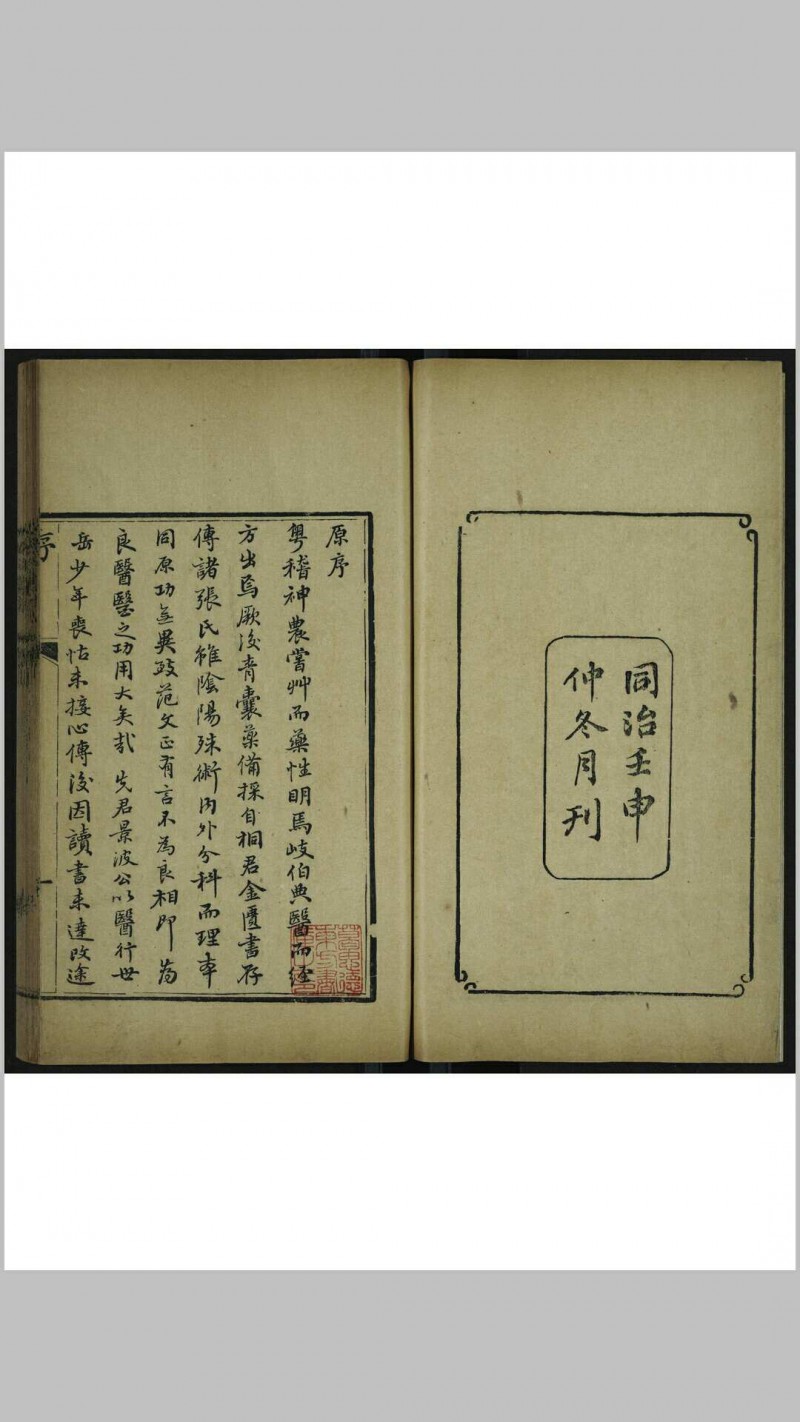 同治壬申
仲冬月刊
原序
粤稽神農嘗艸而藥性明焉岐伯典醫而經
方出焉厥後青囊藥備採自桐君金匱書存
傳諸張氏雖陰陽殊術内外分科而理本
同原功無異致范文正有言不為良相即為
良醫醫之功用大矣哉先君景波公以醫行世
岳少年喪怙未接心傳後因讀書未達改途
序
一